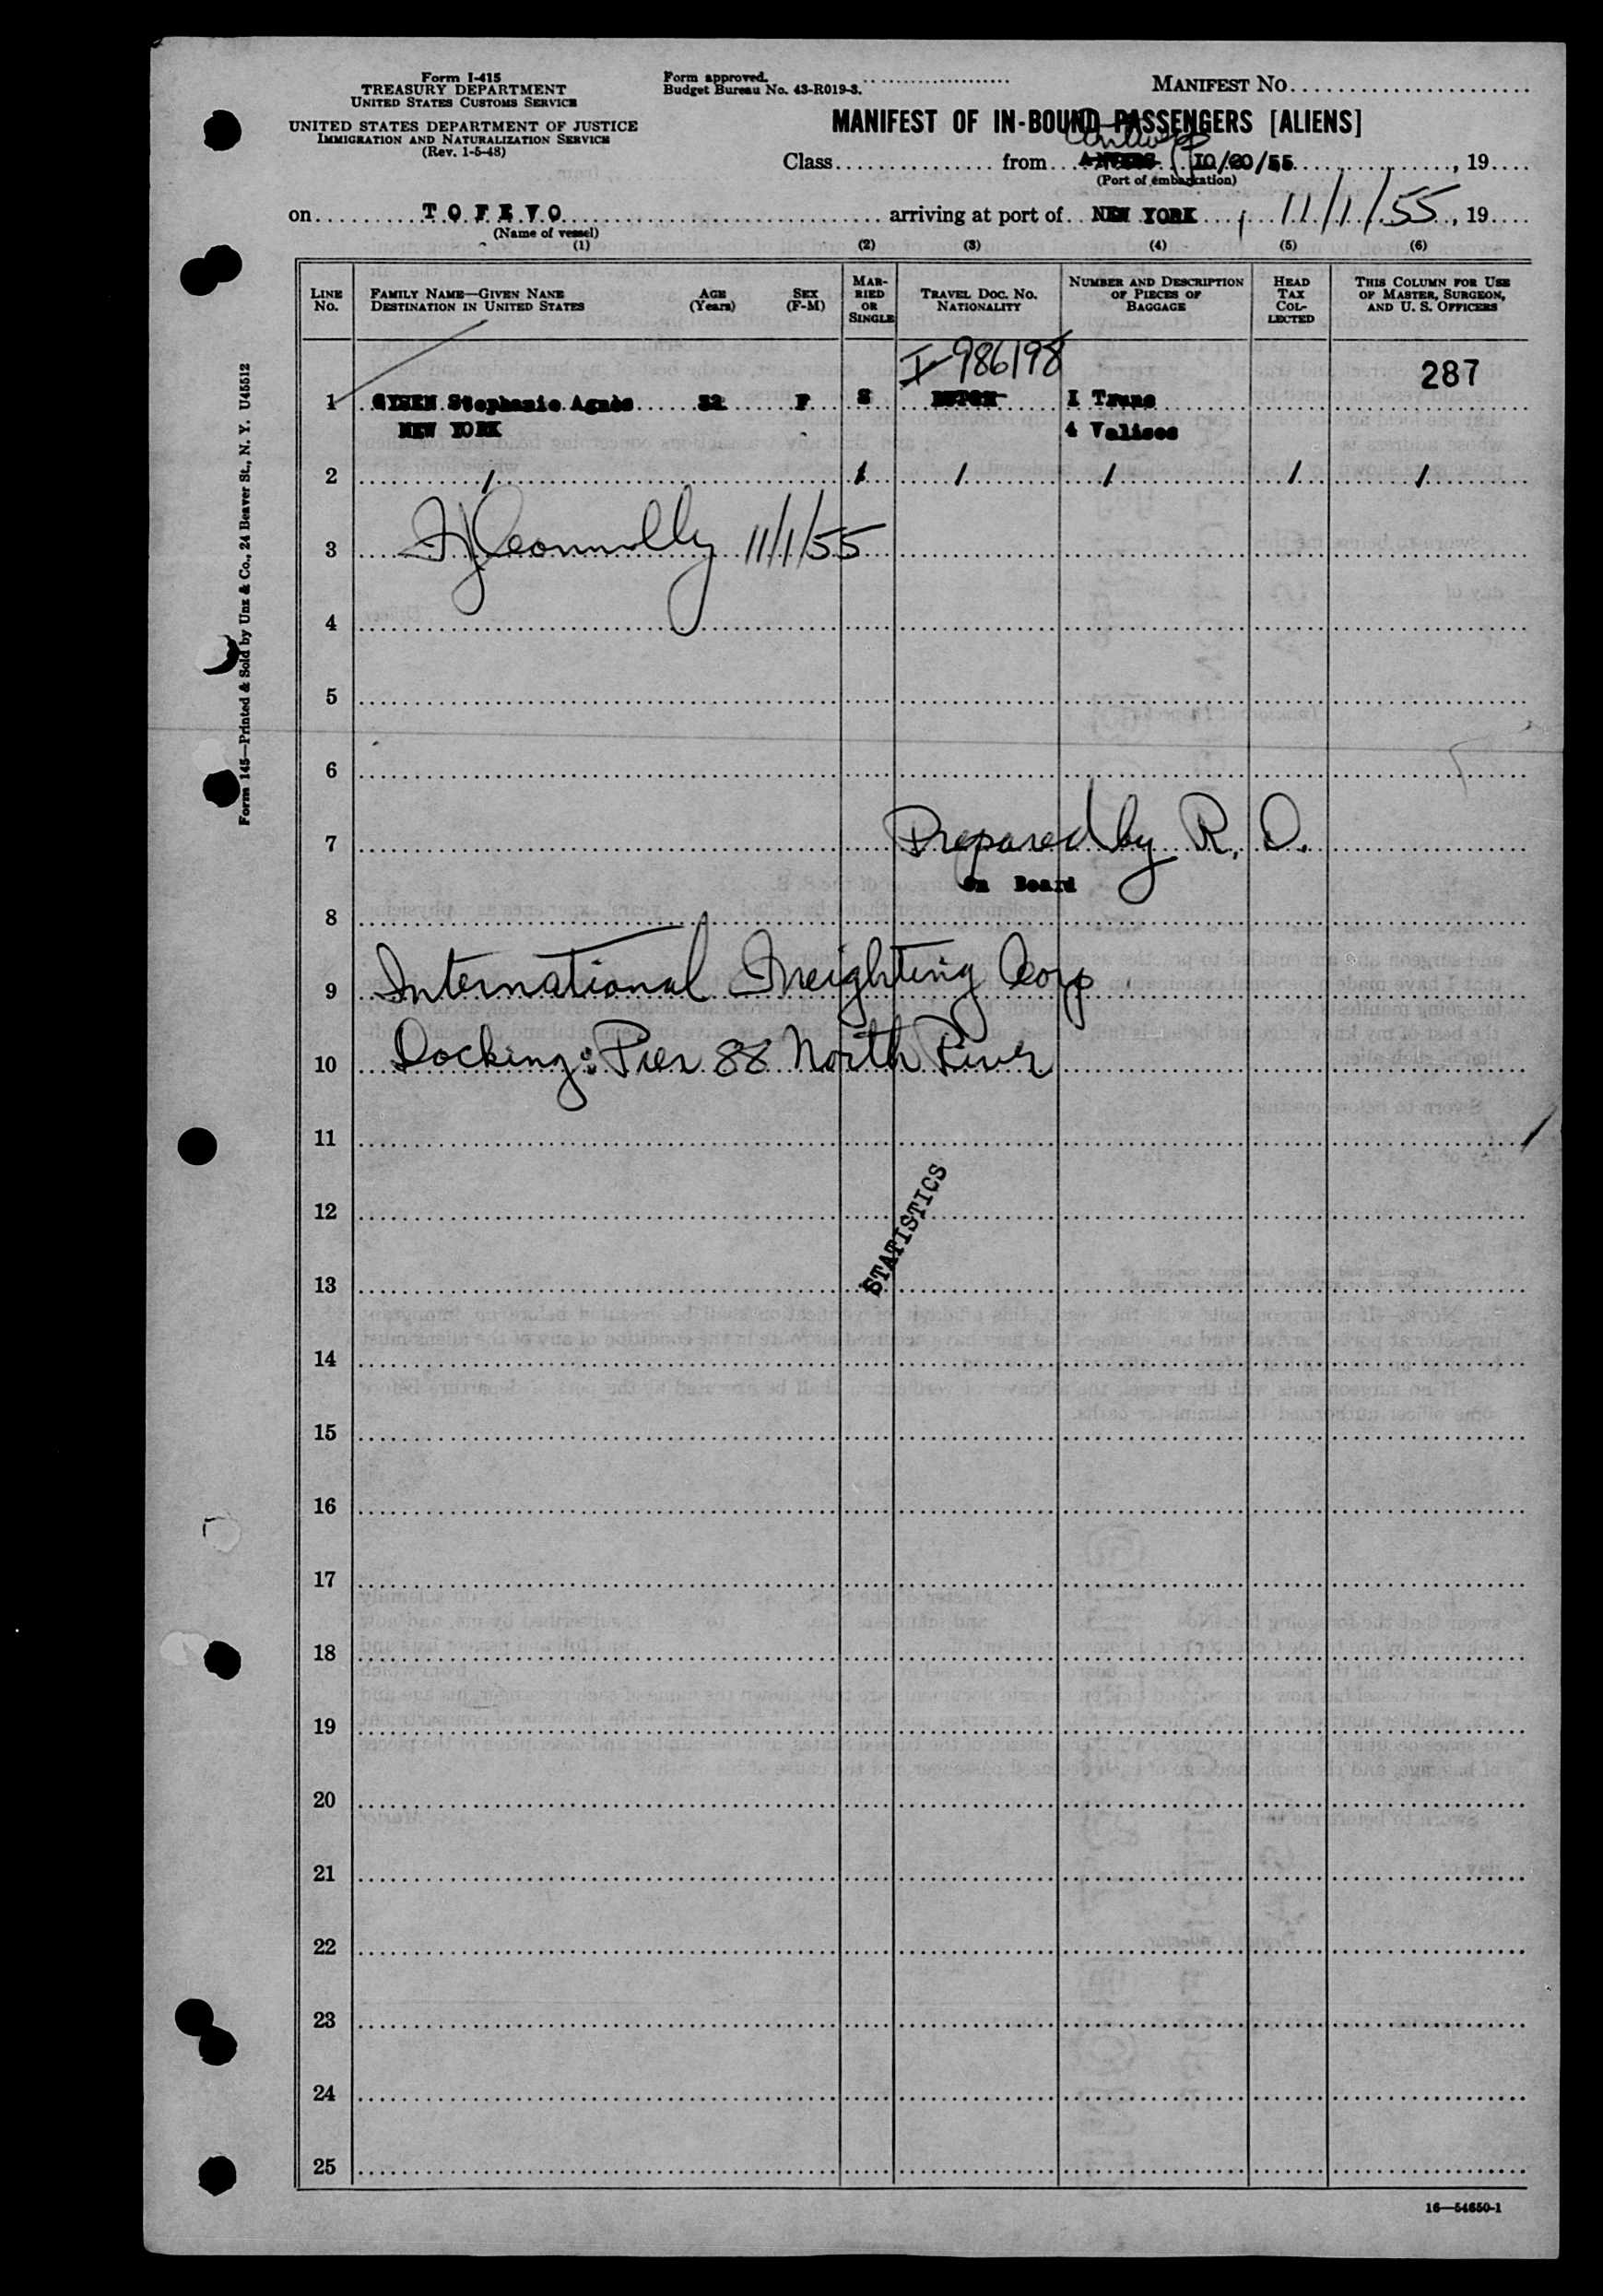 Form I-415
TREASURY DEPARTMENT
UNITED STATES CUSTOMS SERVICE
UNITED STATES DEPARTMENT OF JUSTICE
IMMIGRATION AND NATURALIZATION SERVICE
(Rev. 1-5-48)
Form approved.
Budget Bureau No. 43-R019-3.
MANIFEST NO.
MANIFEST OF IN-BOUND PASSENGERS [ALIENS]
Antwerp
Class from 10/20/55, 19
(Port of embarkation)
on TOFEVO arriving at port of NEW YORK, 11/1/55, 19
(Name of vessel)
(1) (2) (3) (4) (5) (6)
LINE NO. FAMILY NAME—GIVEN NAME DESTINATION IN UNITED STATES AGE (Years) SEX (F-M) MARRIED OR SINGLE TRAVEL DOC. NO. NATIONALITY NUMBER AND DESCRIPTION OF PIECES OF BAGGAGE HEAD TAX COLLECTED THIS COLUMN FOR USE OF MASTER, SURGEON, AND U. S. OFFICERS
I-986198
287
1 GYSEN Stephanie Agnès 32 F S DUTCH I Trunc
NEW YORK 4 Valises
2 / / / / / /
3 FJ Connolly 11/1/55
4
5
6
7 Prepared by R. O.
On Board
8
9 International Freighting Corp
10 Docking: Pier 88 North River
11
12
STATISTICS
13
14
15
16
17
18
19
20
21
22
23
24
25
16—54650-1
Form 145—Printed & Sold by Unz & Co., 24 Beaver St., N. Y. U45512